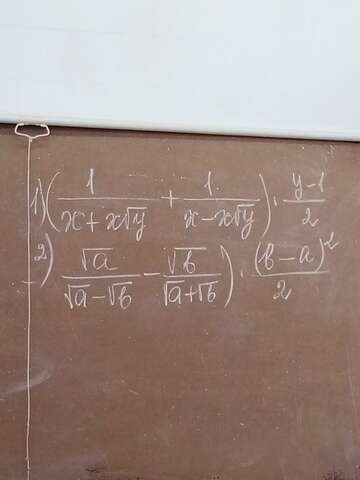 1) (1/(x+x√y) + 1/(x-x√y)) · (y-1)/2
2) √a/(√a-√b) - √b/(√a+√b)) · (b-a)²/2